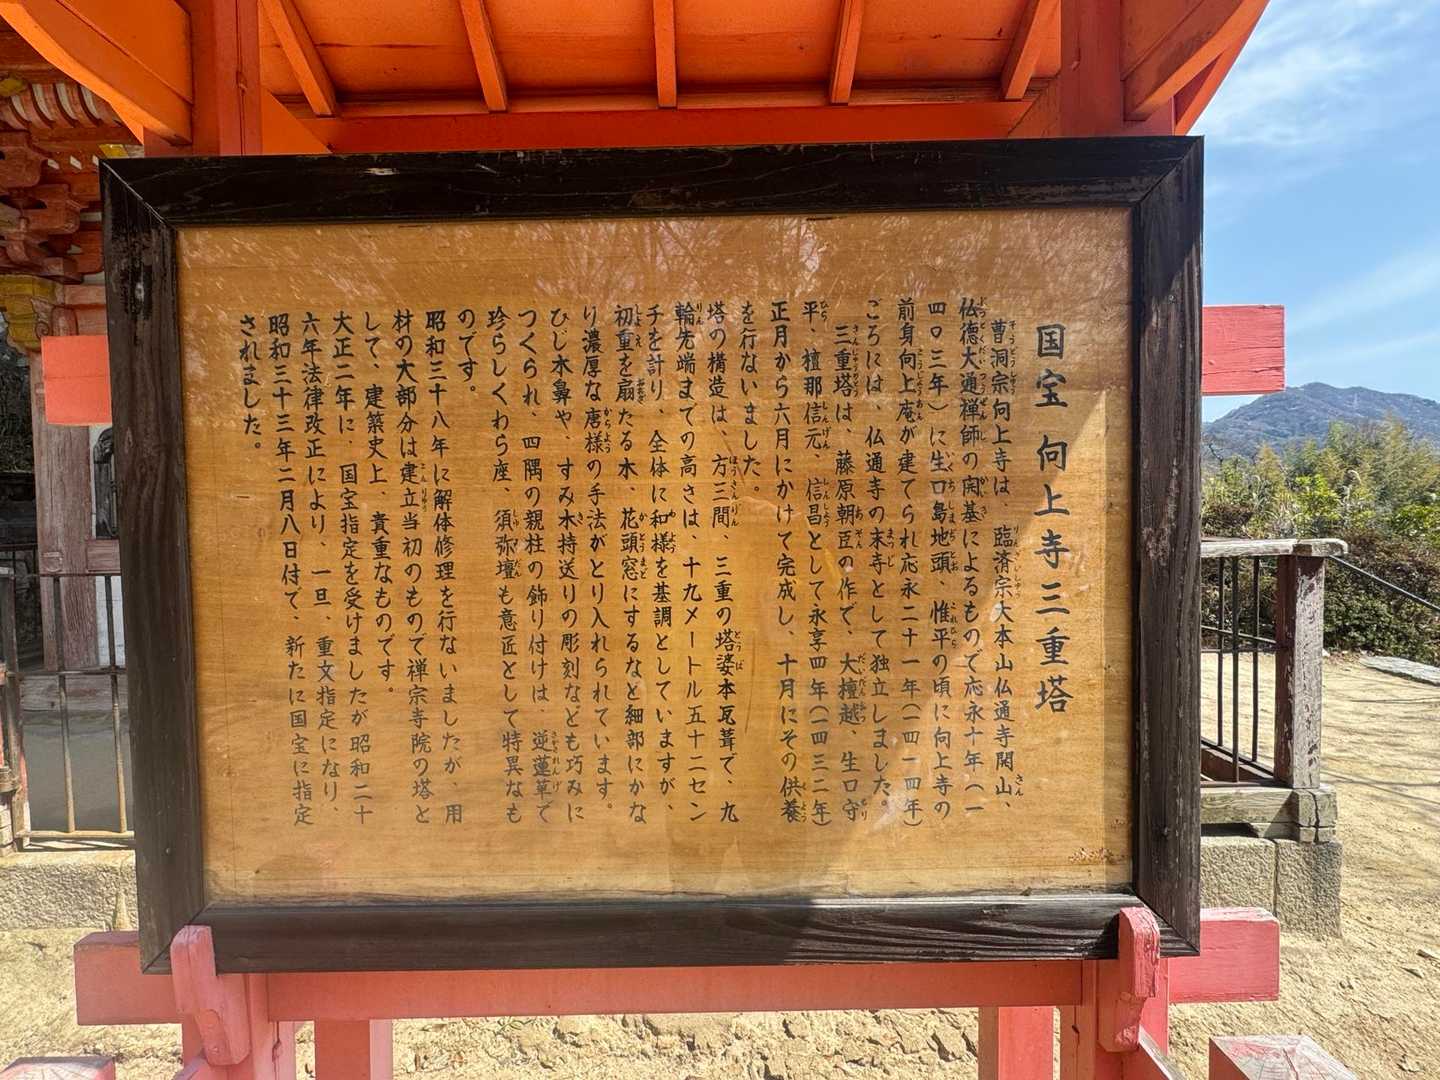 国宝 向上寺三重塔
曹洞宗向上寺は、臨済宗大本山仏通寺開山、
仏徳大通禅師の開基によるもので応永十年(一
四〇三年)に生口島地頭、惟平の頃に向上寺の
前身向上庵が建てられ応永二十一年(一四一四年)
ごろには、仏通寺の末寺として独立しました。
三重塔は、藤原朝臣の作で、大檀越、生口守
平、檀那信元、信昌として永享四年(一四三二年)
正月から六月にかけて完成し、十月にその供養
を行ないました。
塔の構造は、方三間、三重の塔婆本瓦葺で、九
輪先端までの高さは、十九メートル五十二セン
チを計り、全体に和様を基調としていますが、
初重を扇たる木、花頭窓にするなど細部にかな
り濃厚な唐様の手法がとり入れられています。
ひじ木鼻や、すみ木持送りの彫刻なども巧みに
つくられ、四隅の親柱の飾り付けは、逆蓮草で
珍らしくわら座、須弥壇も意匠として特異なも
のです。
昭和三十八年に解体修理を行ないましたが、用
材の大部分は建立当初のもので禅宗寺院の塔と
して、建築史上、貴重なものです。
大正二年に、国宝指定を受けましたが昭和二十
六年法律改正により、一旦、重文指定になり、
昭和三十三年二月八日付で、新たに国宝に指定
されました。